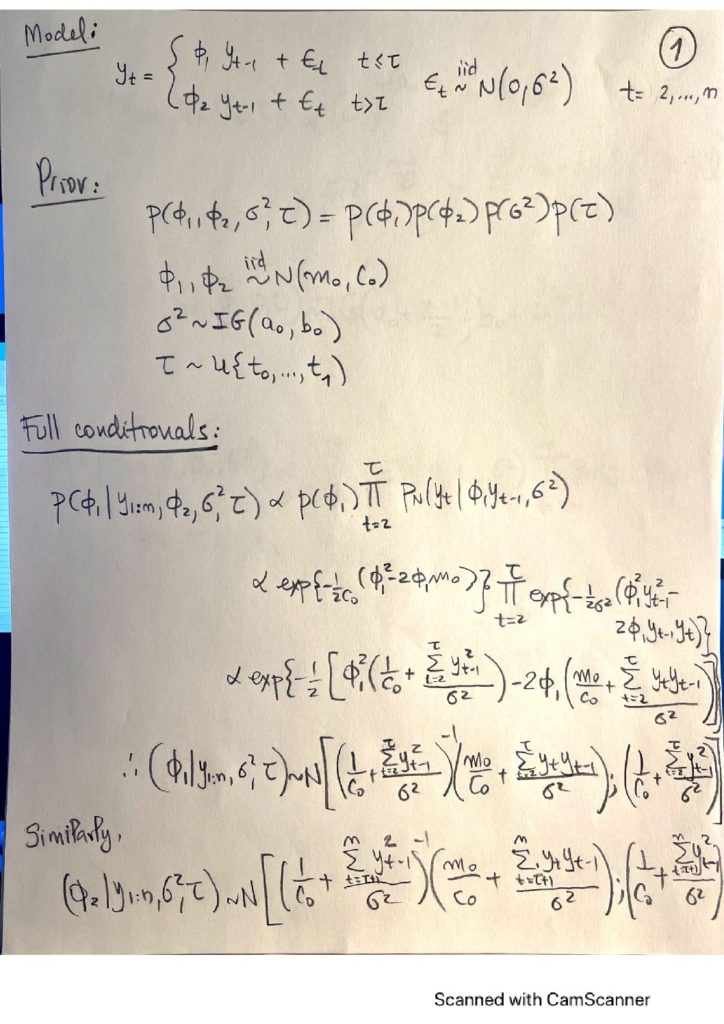 Model: ①
y_t = { φ₁ y_{t-1} + ε_t t ≤ τ
φ₂ y_{t-1} + ε_t t > τ ε_t ~iid N(0, σ²) t = 2, ..., n
Prior:
p(φ₁, φ₂, σ², τ) = p(φ₁)p(φ₂)p(σ²)p(τ)
φ₁, φ₂ ~iid N(m₀, C₀)
σ² ~ IG(a₀, b₀)
τ ~ U{t₀, ..., t₁)
Full conditionals:
p(φ₁ | y_{1:n}, φ₂, σ², τ) ∝ p(φ₁) ∏_{t=2}^{τ} p_N(y_t | φ₁y_{t-1}, σ²)
∝ exp{-1/2C₀ (φ₁² - 2φ₁m₀)} ∏_{t=2}^{τ} exp{-1/2σ² (φ₁²y²_{t-1} -
2φ₁y_{t-1}y_t)}
∝ exp{-1/2 [φ₁² (1/C₀ + Σ_{t=2}^{τ} y²_{t-1} / σ²) - 2φ₁ (m₀/C₀ + Σ_{t=2}^{τ} y_t y_{t-1} / σ²)]
∴ (φ₁ | y_{1:n}, σ², τ) ~ N[(1/C₀ + Σ_{t=2}^{τ} y²_{t-1} / σ²)^{-1} (m₀/C₀ + Σ_{t=2}^{τ} y_t y_{t-1} / σ²); (1/C₀ + Σ_{t=2}^{τ} y²_{t-1} / σ²)]
Similarly,
(φ₂ | y_{1:n}, σ², τ) ~ N[(1/C₀ + Σ_{t=τ+1}^{n} y²_{t-1} / σ²)^{-1} (m₀/C₀ + Σ_{t=τ+1}^{n} y_t y_{t-1} / σ²); (1/C₀ + Σ_{t=τ+1}^{n} y²_{t-1} / σ²)
Scanned with CamScanner